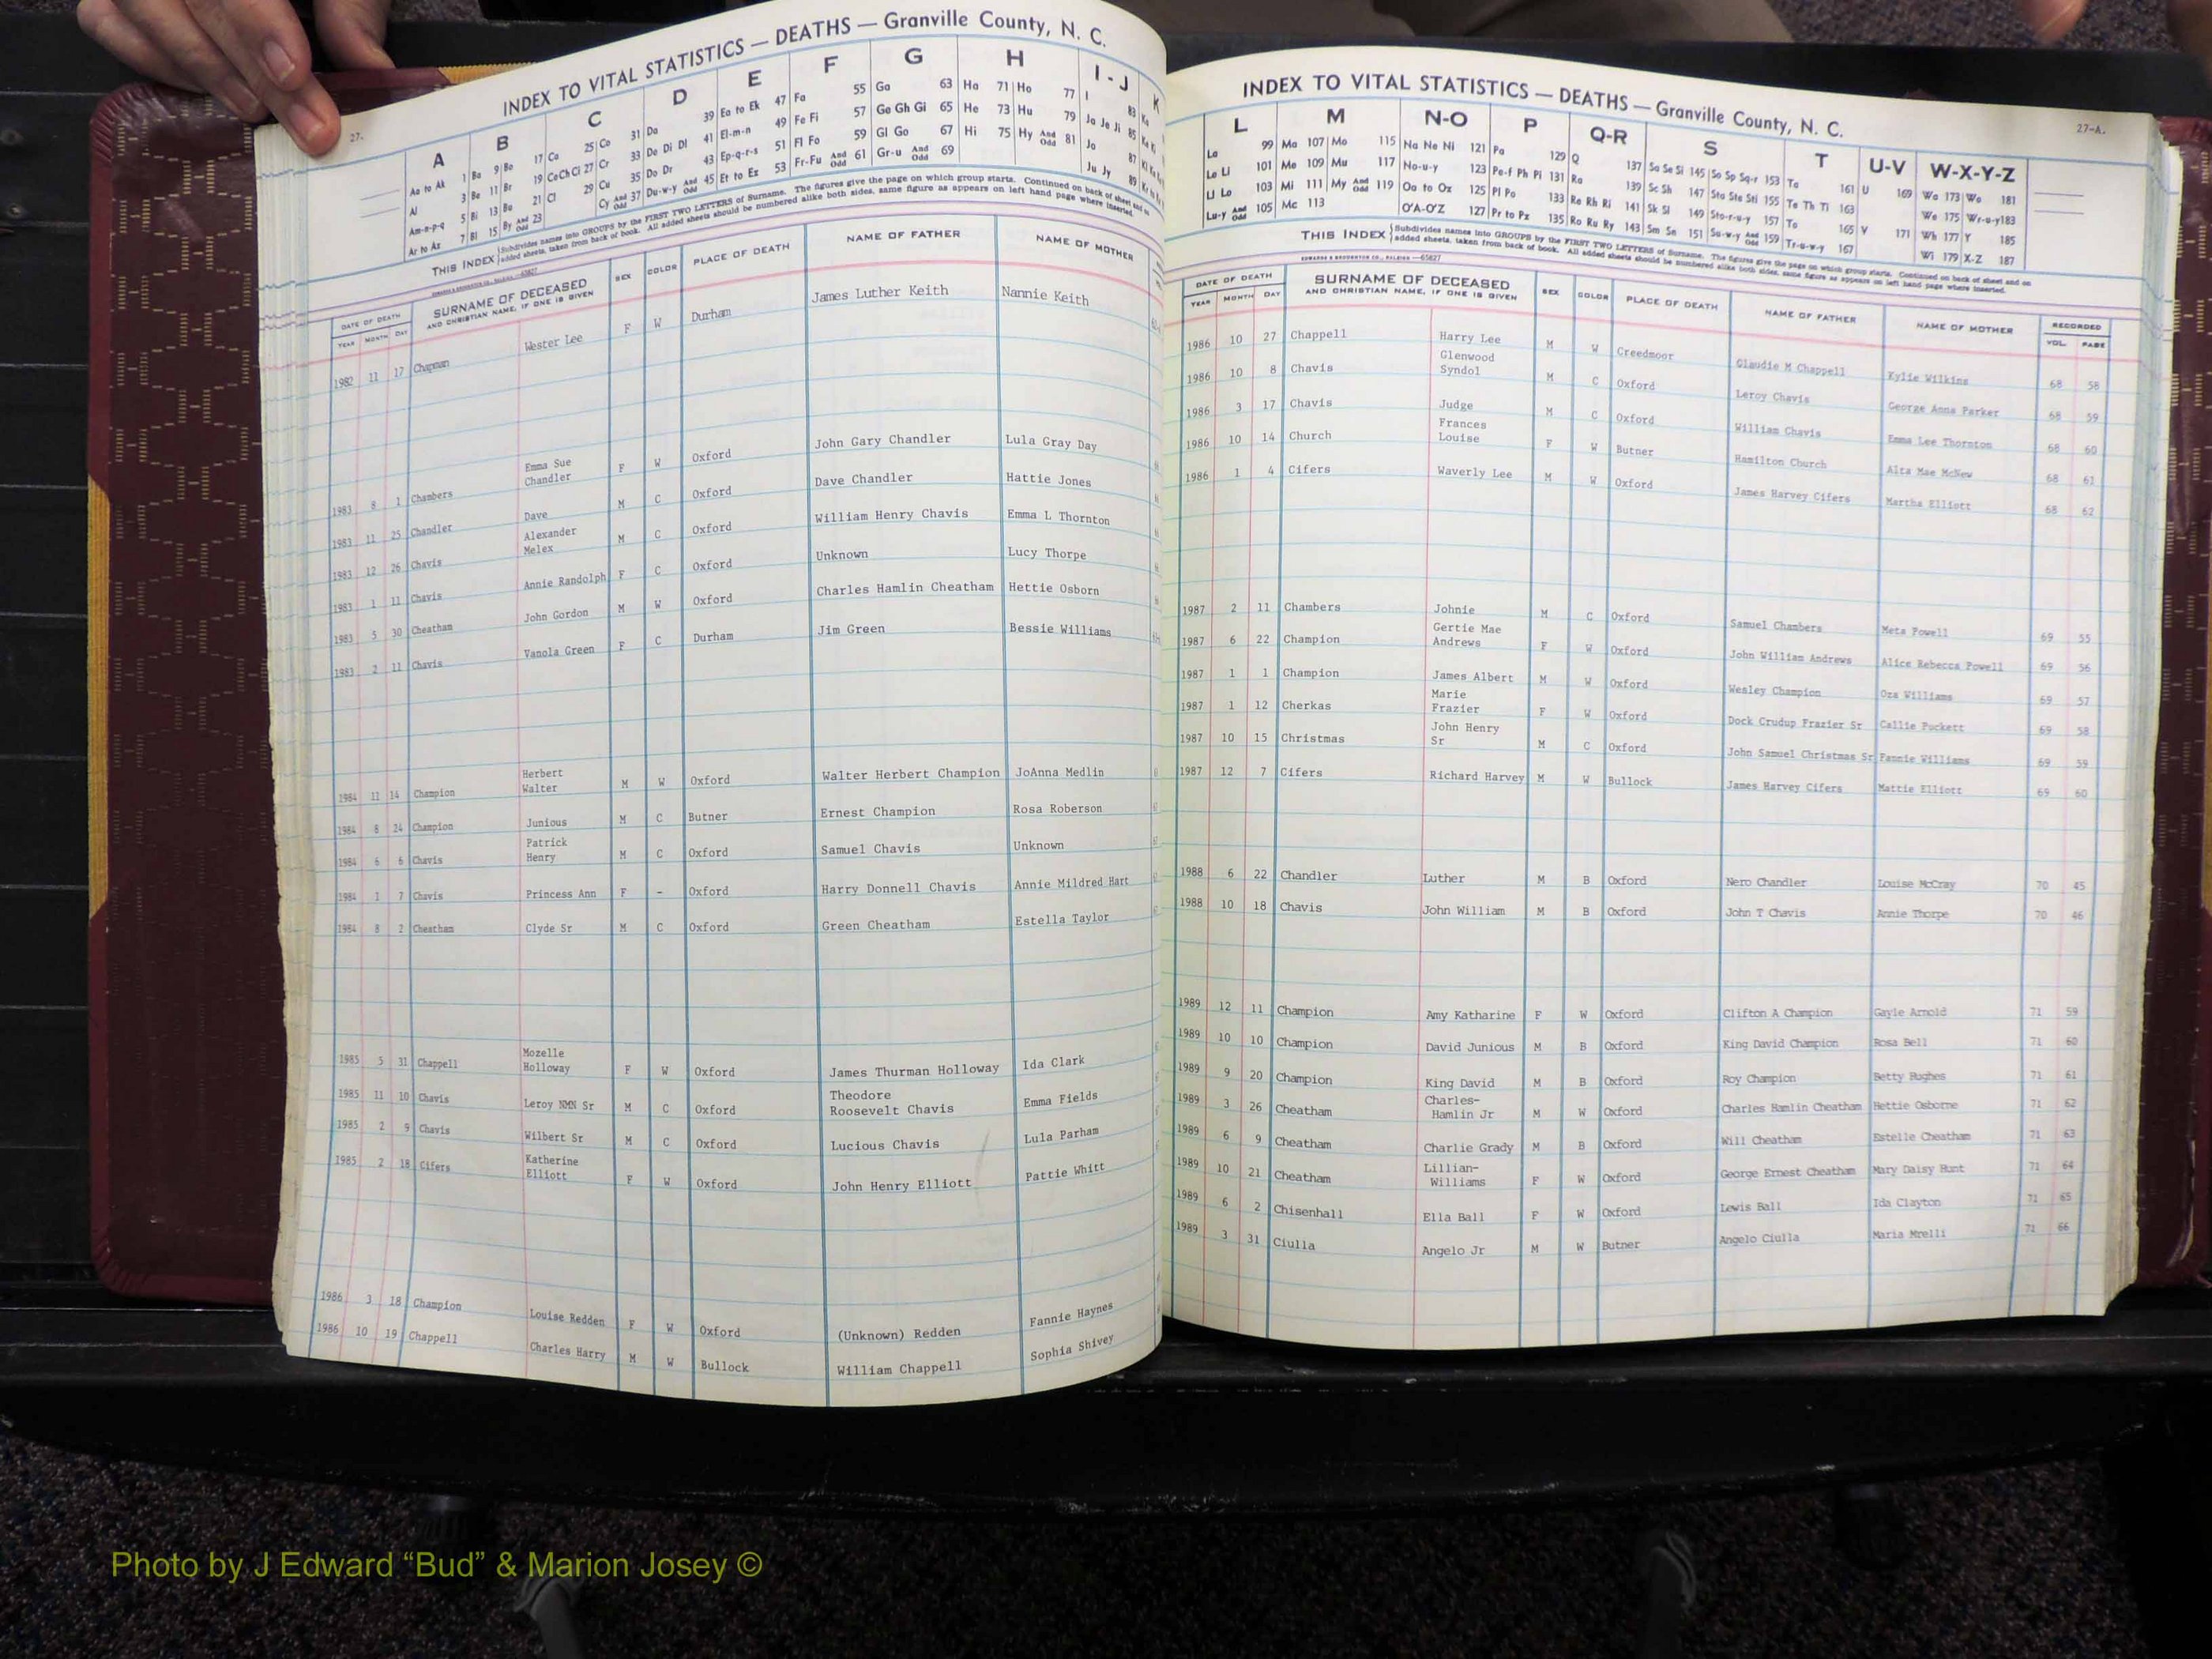 INDEX TO VITAL STATISTICS — DEATHS — Granville County, N. C.
27.
A B C D E F G H I - J K
Aa to Ak 1 Ba 9 Bo 17 Ca 25 Co 31 Da 39 Ea to Ek 47 Fa 55 Ga 63 Ha 71 Ho 77 I 83 Ka
Al 3 Be 11 Br 19 Ce Ch Ci 27 Cr 33 De Di Dl 41 El-m-n 49 Fe Fi 57 Ge Gh Gi 65 He 73 Hu 79 Ja Je Ji 85
Am-n-p-q 5 Bi 13 Bu 21 Cl 29 Cu 35 Do Dr 43 Ep-q-r-s 51 Fl Fo 59 Gl Go 67 Hi 75 Hy And Odd 81 Jo 87
Ar to Az 7 Bl 15 By And Odd 23 Cy And Odd 37 Du-w-y And Odd 45 Et to Ez 53 Fr-Fu And Odd 61 Gr-u And Odd 69 Ju Jy 89
THIS INDEX Subdivides names into GROUPS by the FIRST TWO LETTERS of Surname. The figures give the page on which group starts. Continued on back of sheet and on
added sheets, taken from back of book. All added sheets should be numbered alike both sides, same figure as appears on left hand page where inserted.
DATE OF DEATH SURNAME OF DECEASED SEX COLOR PLACE OF DEATH NAME OF FATHER NAME OF MOTHER
YEAR MONTH DAY AND CHRISTIAN NAME, IF ONE IS GIVEN
1982 11 17 Chapman Wester Lee F W Durham James Luther Keith Nannie Keith
1983 8 1 Chambers Emma Sue Chandler F W Oxford John Gary Chandler Lula Gray Day
1983 11 25 Chandler Dave M C Oxford Dave Chandler Hattie Jones
1983 12 26 Chavis Alexander Melex M C Oxford William Henry Chavis Emma L Thornton
1983 1 11 Chavis Annie Randolph F C Oxford Unknown Lucy Thorpe
1983 5 30 Cheatham John Gordon M W Oxford Charles Hamlin Cheatham Hettie Osborn
1983 2 11 Chavis Vanola Green F C Durham Jim Green Bessie Williams
1984 11 14 Champion Herbert Walter M W Oxford Walter Herbert Champion JoAnna Medlin
1984 8 24 Champion Junious M C Butner Ernest Champion Rosa Roberson
1984 6 6 Chavis Patrick Henry M C Oxford Samuel Chavis Unknown
1984 1 7 Chavis Princess Ann F - Oxford Harry Donnell Chavis Annie Mildred Hart
1984 8 2 Cheatham Clyde Sr M C Oxford Green Cheatham Estella Taylor
1985 5 31 Chappell Mozelle Holloway F W Oxford James Thurman Holloway Ida Clark
1985 11 10 Chavis Leroy NMN Sr M C Oxford Theodore Roosevelt Chavis Emma Fields
1985 2 9 Chavis Wilbert Sr M C Oxford Lucious Chavis Lula Parham
1985 2 18 Cifers Katherine Elliott F W Oxford John Henry Elliott Pattie Whitt
1986 3 18 Champion Louise Redden F W Oxford (Unknown) Redden Fannie Haynes
1986 10 19 Chappell Charles Harry M W Bullock William Chappell Sophia Shivey
INDEX TO VITAL STATISTICS — DEATHS — Granville County, N. C.
27-A.
L M N-O P Q-R S T U-V W-X-Y-Z
La 99 Ma 107 Mo 115 Na Ne Ni 121 Pa 129 Q 137 Sa Se Si 145 So Sp Sq-r 153 Ta 161 U 169 Wa 173 Wo 181
Le Li 101 Me 109 Mu 117 No-u-y 123 Pe-f Ph Pi 131 Ra 139 Sc Sh 147 Sta Ste Sti 155 Te Th Ti 163 We 175 Wr-u-y 183
Ll Lo 103 Mi 111 My And Odd 119 Oa to Oz 125 Pl Po 133 Re Rh Ri 141 Sk Sl 149 Sto-r-u-y 157 To 165 V 171 Wh 177 Y 185
Lu-y And Odd 105 Mc 113 O'A-O'Z 127 Pr to Pz 135 Ro Ru Ry 143 Sm Sn 151 Su-w-y And Odd 159 Tr-u-w-y 167 Wi 179 X-Z 187
THIS INDEX Subdivides names into GROUPS by the FIRST TWO LETTERS of Surname. The figures give the page on which group starts. Continued on back of sheet and on
added sheets, taken from back of book. All added sheets should be numbered alike both sides, same figure as appears on left hand page where inserted.
DATE OF DEATH SURNAME OF DECEASED SEX COLOR PLACE OF DEATH NAME OF FATHER NAME OF MOTHER RECORDED
YEAR MONTH DAY AND CHRISTIAN NAME, IF ONE IS GIVEN VOL. PAGE
1986 10 27 Chappell Harry Lee M W Creedmoor Claudie M Chappell Kylie Wilkins 68 58
1986 10 8 Chavis Glenwood Syndol M C Oxford Leroy Chavis George Anna Parker 68 59
1986 3 17 Chavis Judge M C Oxford William Chavis Emma Lee Thornton 68 60
1986 10 14 Church Frances Louise F W Butner Hamilton Church Alta Mae McNew 68 61
1986 1 4 Cifers Waverly Lee M W Oxford James Harvey Cifers Martha Elliott 68 62
1987 2 11 Chambers Johnie M C Oxford Samuel Chambers Meta Powell 69 55
1987 6 22 Champion Gertie Mae Andrews F W Oxford John William Andrews Alice Rebecca Powell 69 56
1987 1 1 Champion James Albert M W Oxford Wesley Champion Oza Williams 69 57
1987 1 12 Cherkas Marie Frazier F W Oxford Dock Crudup Frazier Sr Callie Puckett 69 58
1987 10 15 Christmas John Henry Sr M C Oxford John Samuel Christmas Sr Fannie Williams 69 59
1987 12 7 Cifers Richard Harvey M W Bullock James Harvey Cifers Mattie Elliott 69 60
1988 6 22 Chandler Luther M B Oxford Nero Chandler Louise McCray 70 45
1988 10 18 Chavis John William M B Oxford John T Chavis Annie Thorpe 70 46
1989 12 11 Champion Amy Katharine F W Oxford Clifton A Champion Gayle Arnold 71 59
1989 10 10 Champion David Junious M B Oxford King David Champion Rosa Bell 71 60
1989 9 20 Champion King David M B Oxford Roy Champion Betty Hughes 71 61
1989 3 26 Cheatham Charles- Hamlin Jr M W Oxford Charles Hamlin Cheatham Hettie Osborne 71 62
1989 6 9 Cheatham Charlie Grady M B Oxford Will Cheatham Estelle Cheatham 71 63
1989 10 21 Cheatham Lillian- Williams F W Oxford George Ernest Cheatham Mary Daisy Hunt 71 64
1989 6 2 Chisenhall Ella Ball F W Oxford Lewis Ball Ida Clayton 71 65
1989 3 31 Ciulla Angelo Jr M W Butner Angelo Ciulla Maria Mrelli 71 66
Photo by J Edward “Bud” & Marion Josey ©